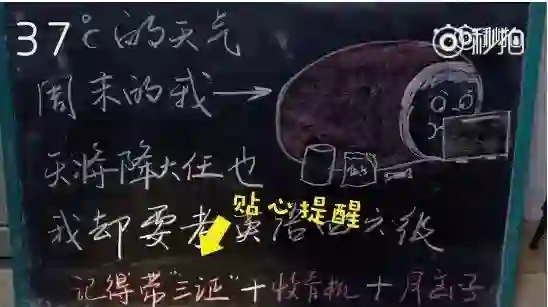 37℃的天气
秒拍
周末的我→
天将降大任也
贴心提醒
我却要考英语四六级
记得带"三证"+收音机+耳塞子